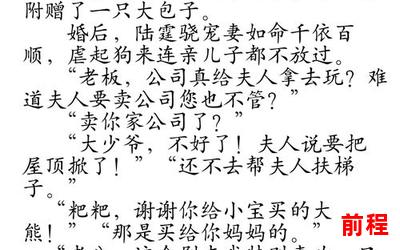 附赠了一只大包子。
婚后，陆霆骁宠妻如命千依百
顺，虐起狗来连亲儿子都不放过。
“老板，公司真给夫人拿去玩？难
道夫人要卖公司您也不管？”
“卖你家公司了？”
“大少爷，不好了！夫人说要把
屋顶掀了！”“还不去帮夫人扶梯
子。”
“粑粑，谢谢你给小宝买的大
熊！”“那是买给你妈妈的。”
前程